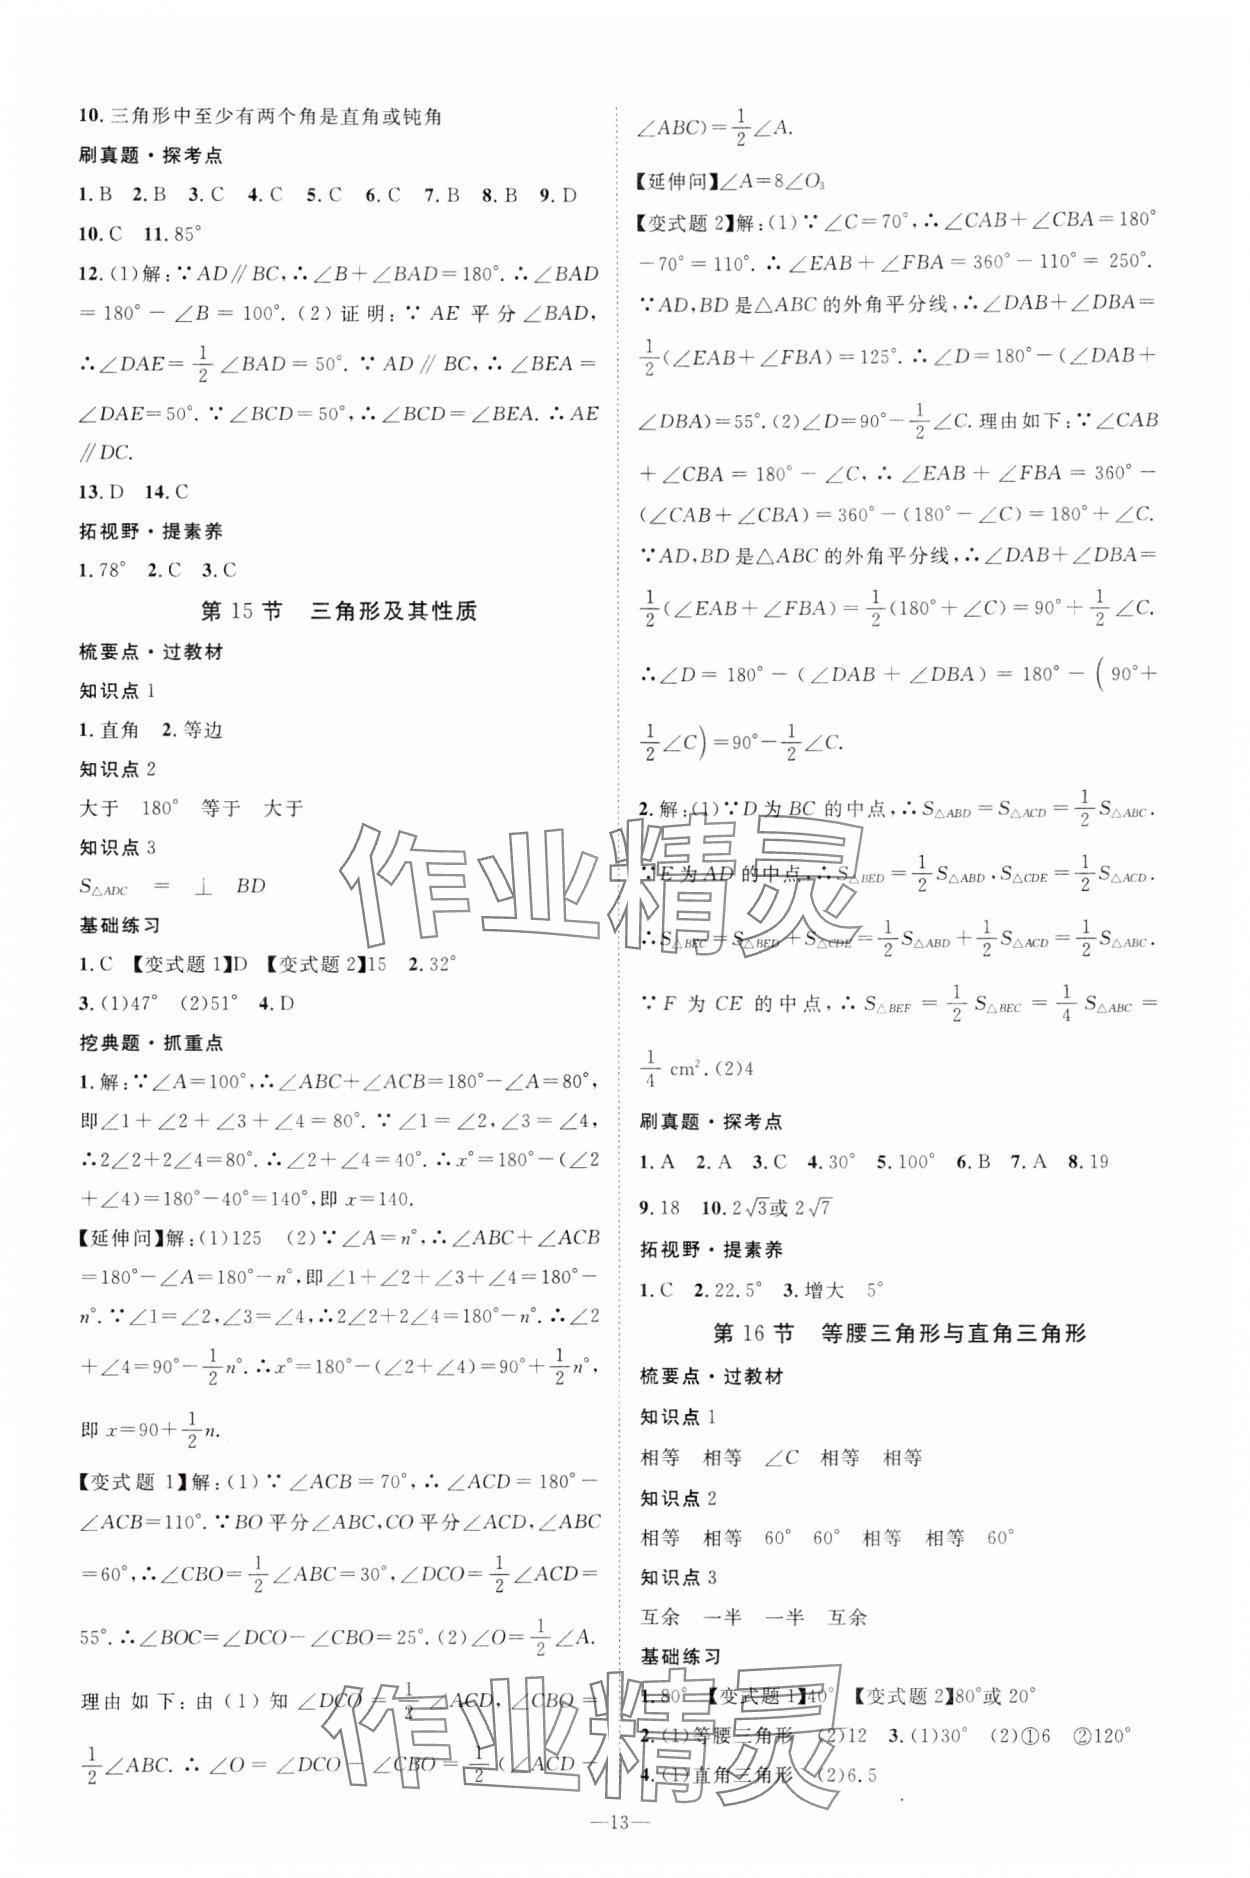 10. 三角形中至少有两个角是直角或钝角
刷真题·探考点
1. B 2. B 3. C 4. C 5. C 6. C 7. B 8. B 9. D
10. C 11. 85°
12. (1)解:∵AD∥BC,∴∠B+∠BAD=180°.∴∠BAD
=180°-∠B=100°.(2)证明:∵AE平分∠BAD,
∴∠DAE=1/2∠BAD=50°.∵AD∥BC,∴∠BEA=
∠DAE=50°.∵∠BCD=50°,∴∠BCD=∠BEA.∴AE
∥DC.
13. D 14. C
拓视野·提素养
1. 78° 2. C 3. C
第 15 节 三角形及其性质
梳要点·过教材
知识点 1
1. 直角 2. 等边
知识点 2
大于 180° 等于 大于
知识点 3
S△ADC = ⊥ BD
基础练习
1. C 【变式题 1】D 【变式题 2】15 2. 32°
3. (1)47° (2)51° 4. D
挖典题·抓重点
1. 解:∵∠A=100°,∴∠ABC+∠ACB=180°-∠A=80°,
即∠1+∠2+∠3+∠4=80°.∵∠1=∠2,∠3=∠4,
∴2∠2+2∠4=80°.∴∠2+∠4=40°.∴x°=180°-(∠2
+∠4)=180°-40°=140°,即 x=140.
【延伸问】解:(1)125 (2)∵∠A=n°,∴∠ABC+∠ACB
=180°-∠A=180°-n°,即∠1+∠2+∠3+∠4=180°-
n°.∵∠1=∠2,∠3=∠4,∴2∠2+2∠4=180°-n°.∴∠2
+∠4=90°-1/2n°.∴x°=180°-(∠2+∠4)=90°+1/2n°,
即 x=90+1/2n.
【变式题 1】解:(1)∵∠ACB=70°,∴∠ACD=180°-
∠ACB=110°.∵BO平分∠ABC,CO平分∠ACD,∠ABC
=60°,∴∠CBO=1/2∠ABC=30°,∠DCO=1/2∠ACD=
55°.∴∠BOC=∠DCO-∠CBO=25°.(2)∠O=1/2∠A.
理由如下:由(1)知∠DCO=1/2∠ACD,∠CBO=
1/2∠ABC.∴∠O=∠DCO-∠CBO=1/2(∠ACD-
∠ABC)=1/2∠A.
【延伸问】∠A=8∠O₃
【变式题 2】解:(1)∵∠C=70°,∴∠CAB+∠CBA=180°
-70°=110°.∴∠EAB+∠FBA=360°-110°=250°.
∵AD,BD是△ABC的外角平分线,∴∠DAB+∠DBA=
1/2(∠EAB+∠FBA)=125°.∴∠D=180°-(∠DAB+
∠DBA)=55°.(2)∠D=90°-1/2∠C.理由如下:∵∠CAB
+∠CBA=180°-∠C,∴∠EAB+∠FBA=360°-
(∠CAB+∠CBA)=360°-(180°-∠C)=180°+∠C.
∵AD,BD是△ABC的外角平分线,∴∠DAB+∠DBA=
1/2(∠EAB+∠FBA)=1/2(180°+∠C)=90°+1/2∠C.
∴∠D=180°-(∠DAB+∠DBA)=180°-(90°+
1/2∠C)=90°-1/2∠C.
2. 解:(1)∵D为BC的中点,∴S△ABD=S△ACD=1/2S△ABC.
∵E为AD的中点,∴S△BED=1/2S△ABD,S△CDE=1/2S△ACD.
∴S△BEC=S△BED+S△CDE=1/2S△ABD+1/2S△ACD=1/2S△ABC.
∵F为CE的中点,∴S△BEF=1/2S△BEC=1/4S△ABC=
1/4 cm².(2)4
刷真题·探考点
1. A 2. A 3. C 4. 30° 5. 100° 6. B 7. A 8. 19
9. 18 10. 2√3或2√7
拓视野·提素养
1. C 2. 22.5° 3. 增大 5°
第 16 节 等腰三角形与直角三角形
梳要点·过教材
知识点 1
相等 相等 ∠C 相等 相等
知识点 2
相等 相等 60° 60° 相等 相等 60°
知识点 3
互余 一半 一半 互余
基础练习
1. 80° 【变式题 1】40° 【变式题 2】80°或 20°
2. (1)等腰三角形 (2)12 3. (1)30° (2)①6 ②120°
4. (1)直角三角形 (2)6.5
—13—
作业精灵
作业精灵